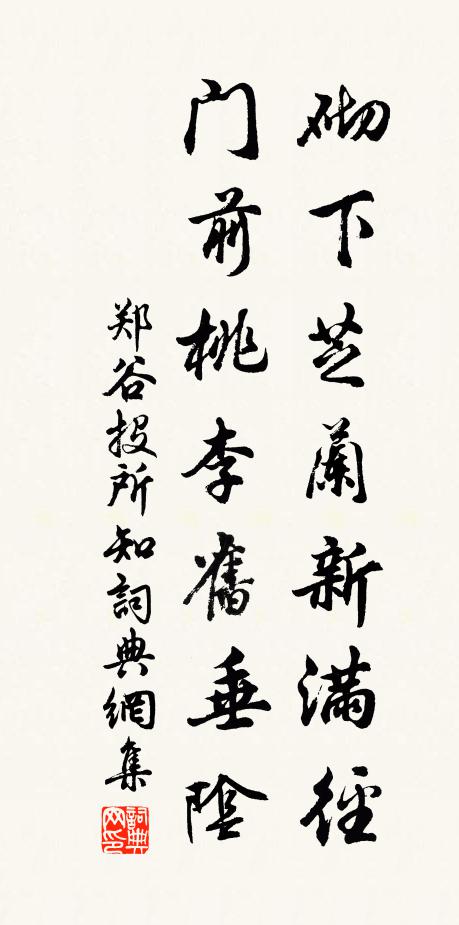 砌下芝蘭新滿徑
門前桃李舊垂陰
郑谷投所知詞典網集
詞典網印